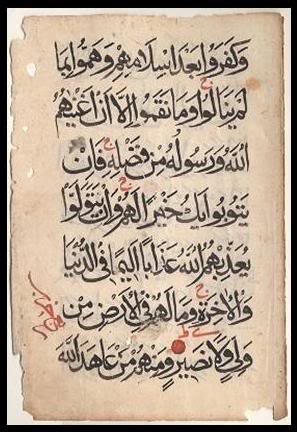 وَكَفَرُوا بَعْدَ اِسْلَامِهِمْ وَهَمُّوا بِمَا
لَمْ يَنَالُوا وَمَا نَقَمُوا اِلَّا اَنْ اَغْنٰيهُمُ
اللهُ وَرَسُولُهُ مِنْ فَضْلِهِ فَاِنْ
يَتُوبُوا يَكُ خَيْرًا لَهُمْ وَاِنْ يَتَوَلَّوْا
يُعَذِّبْهُمُ اللهُ عَذَابًا اَلِيمًا فِى الدُّنْيَا
وَالْاٰخِرَةِ وَمَا لَهُمْ فِى الْاَرْضِ مِنْ
وَلِيٍّ وَلَا نَصِيرٍ وَمِنْهُمْ مَنْ عَاهَدَ اللهَ